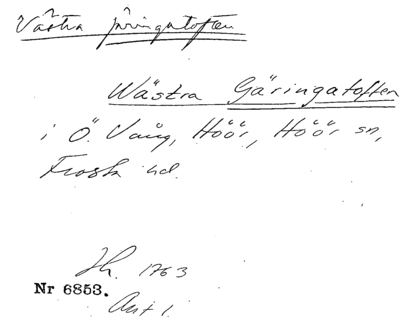 Västra järingatoften
Wästra Gäringatoften
i Ö. Vång, Höör, Höör sn,
Frosta hd.
Lh. 1763
Nr 6853.
Akt 1.